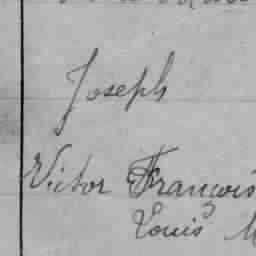 Joseph
Victor François
Louis